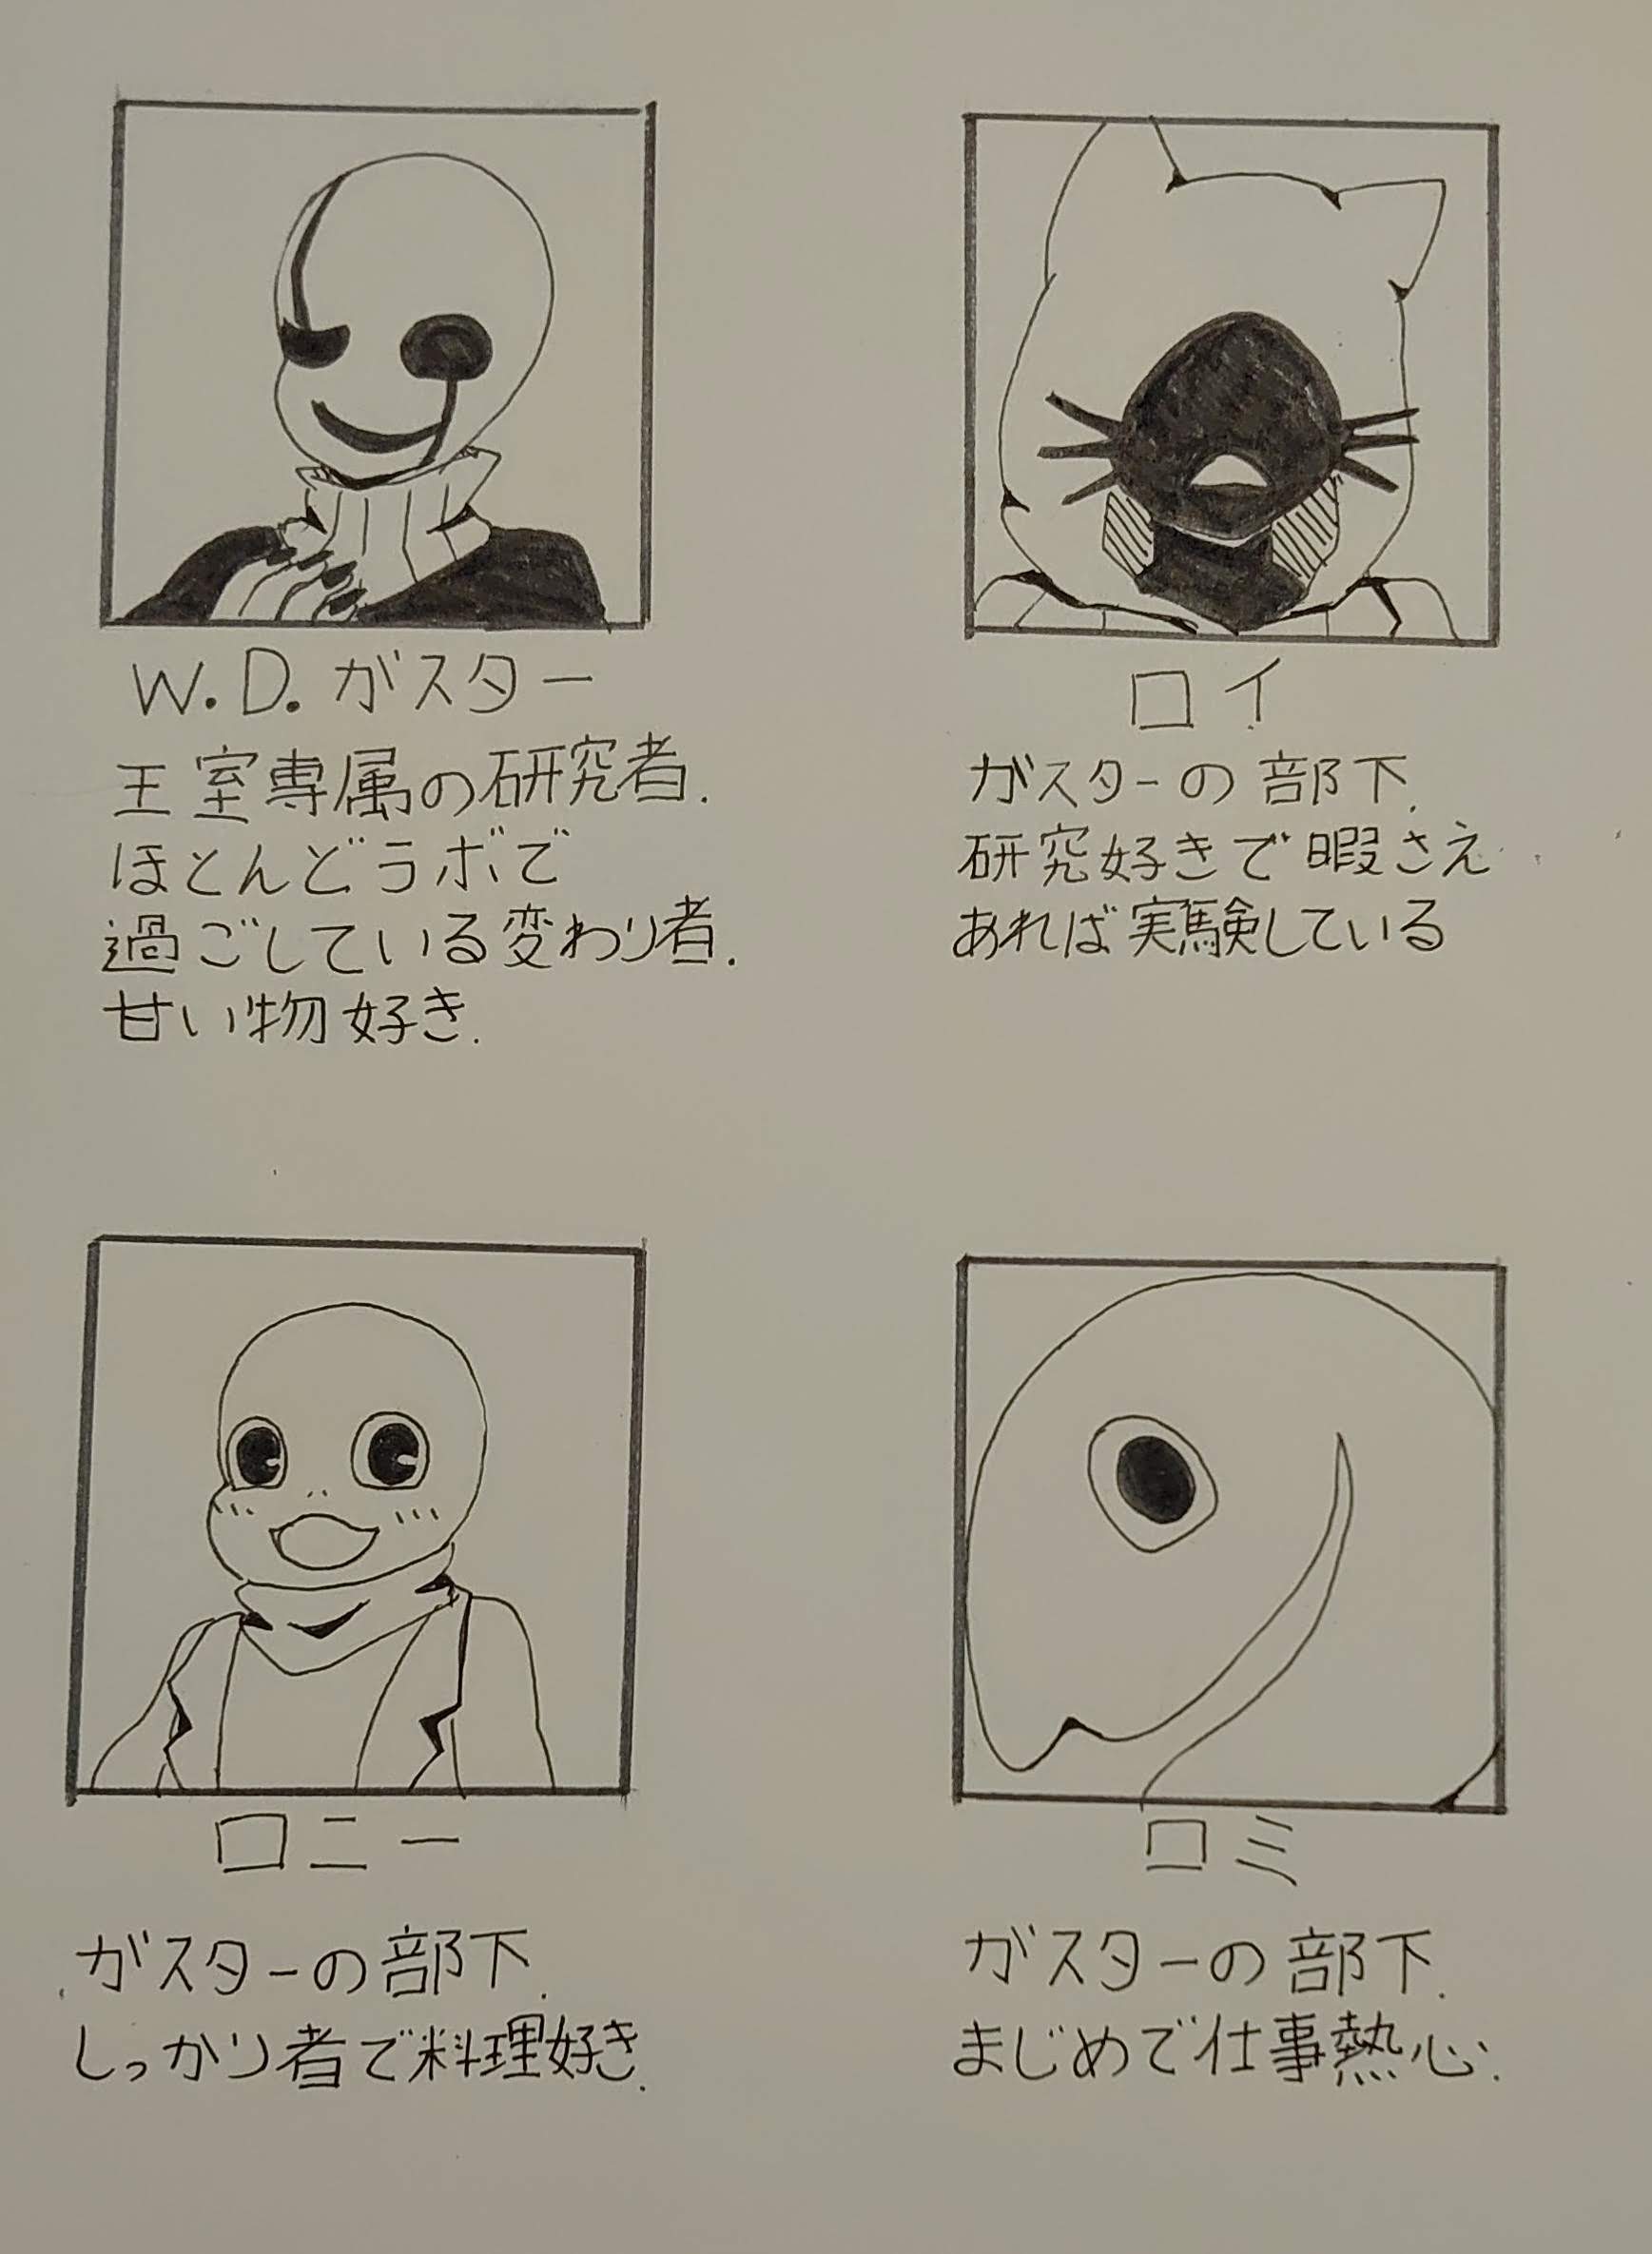 W.D.ガスター
王室専属の研究者.
ほとんどラボで
過ごしている変わり者.
甘い物好き.
ロイ
ガスターの部下.
研究好きで暇さえ
あれば実験している
ロニー
ガスターの部下.
しっかり者で料理好き.
ロミ
ガスターの部下.
まじめで仕事熱心.